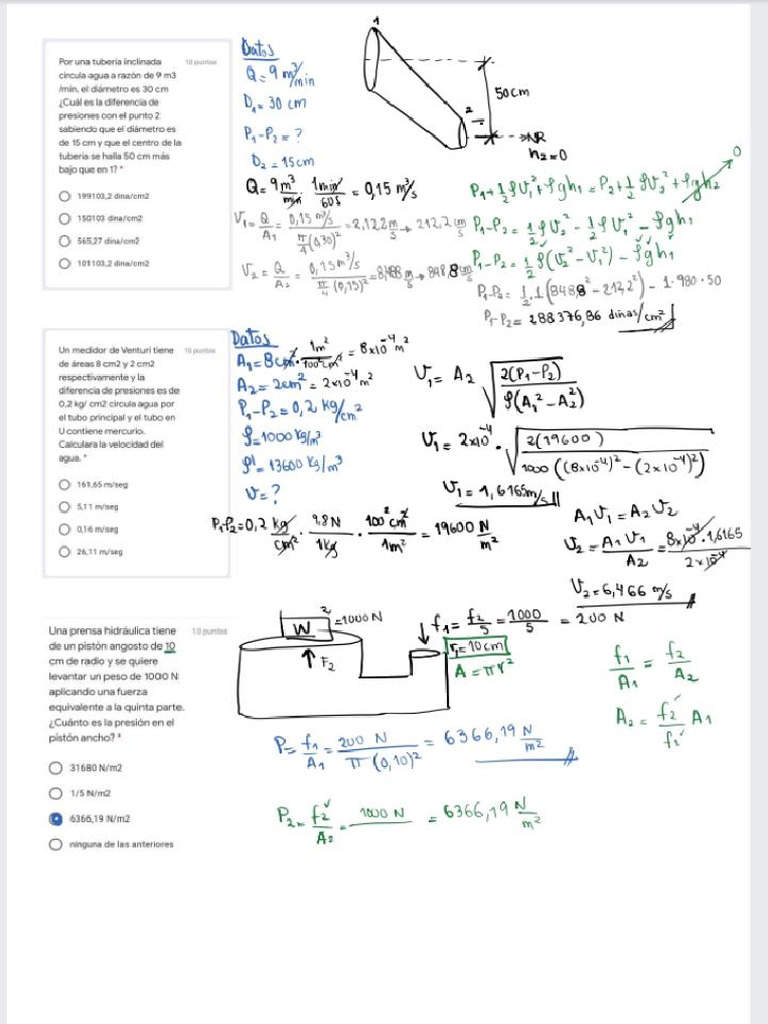 Por una tubería inclinada 10 puntos
circula agua a razón de 9 m3
/min, el diámetro es 30 cm
¿Cuál es la diferencia de
presiones con el punto 2
sabiendo que el diámetro es
de 15 cm y que el centro de la
tubería se halla 50 cm más
bajo que en 1? *
199103,2 dina/cm2
150103 dina/cm2
565,27 dina/cm2
101103,2 dina/cm2
Datos
Q = 9 m³/min
D₁ = 30 cm
P₁-P₂ = ?
D₂ = 15cm
1
2
50cm
NR
h₂=0
Q = 9m³/min · 1min/60s = 0,15 m³/s
V₁ = Q/A₁ = 0,15 m³/s / π/4(0,30)² = 2,122 m/s → 212,2 cm/s
V₂ = Q/A₂ = 0,15m³/s / π/4 (0,15)² = 8,488 m/s → 848,8 cm/s
P₁+½ρV₁²+ρgh₁ = P₂+½ρV₂²+ρgh₂ 0
P₁-P₂ = ½ρV₂² - ½ρV₁² - ρgh₁
P₁-P₂ = ½ρ(V₂²-V₁²) - ρgh₁
P₁-P₂ = ½·1(848,8² - 212,2²) - 1·980·50
P₁-P₂ = 288376,86 dinas/cm²
Un medidor de Venturi tiene 10 puntos
de áreas 8 cm2 y 2 cm2
respectivamente y la
diferencia de presiones es de
0,2 kg/ cm2 circula agua por
el tubo principal y el tubo en
U contiene mercurio.
Calculara la velocidad del
agua. *
161,65 m/seg
5,11 m/seg
0,16 m/seg
26,11 m/seg
Datos
A₁ = 8cm² · 1m²/100²cm² = 8x10⁻⁴ m²
A₂ = 2cm² = 2x10⁻⁴m²
P₁-P₂ = 0,2 Kg/cm²
ρ = 1000 Kg/m³
ρ' = 13600 Kg/m³
V = ?
P₁-P₂ = 0,2 kg/cm² · 9.8N/1Kg · 100²cm²/1m² = 19600 N/m²
V₁ = A₂ √(2(P₁-P₂) / ρ(A₁²-A₂²))
V₁ = 2x10⁻⁴ · √(2(19600) / 1000((8x10⁻⁴)²-(2x10⁻⁴)²))
V₁ = 1,6165m/s
A₁V₁ = A₂V₂
V₂ = A₁V₁/A₂ = 8x10⁻⁴·1,6165 / 2x10⁻⁴
V₂ = 6,466 m/s
Una prensa hidráulica tiene 10 puntos
de un pistón angosto de 10
cm de radio y se quiere
levantar un peso de 1000 N
aplicando una fuerza
equivalente a la quinta parte.
¿Cuánto es la presión en el
pistón ancho? *
31680 N/m2
1/5 N/m2
6366,19 N/m2
ninguna de las anteriores
W
2
=1000N
F₂
f₁ = f₂/5 = 1000/5 = 200 N
r₁=10cm
A = πr²
f₁/A₁ = f₂/A₂
A₂ = f₂/f₁ A₁
P = f₁/A₁ = 200 N / π(0,10)² = 6366,19 N/m²
P₂ = f₂/A₂ = 1000 N = 6366,19 N/m²